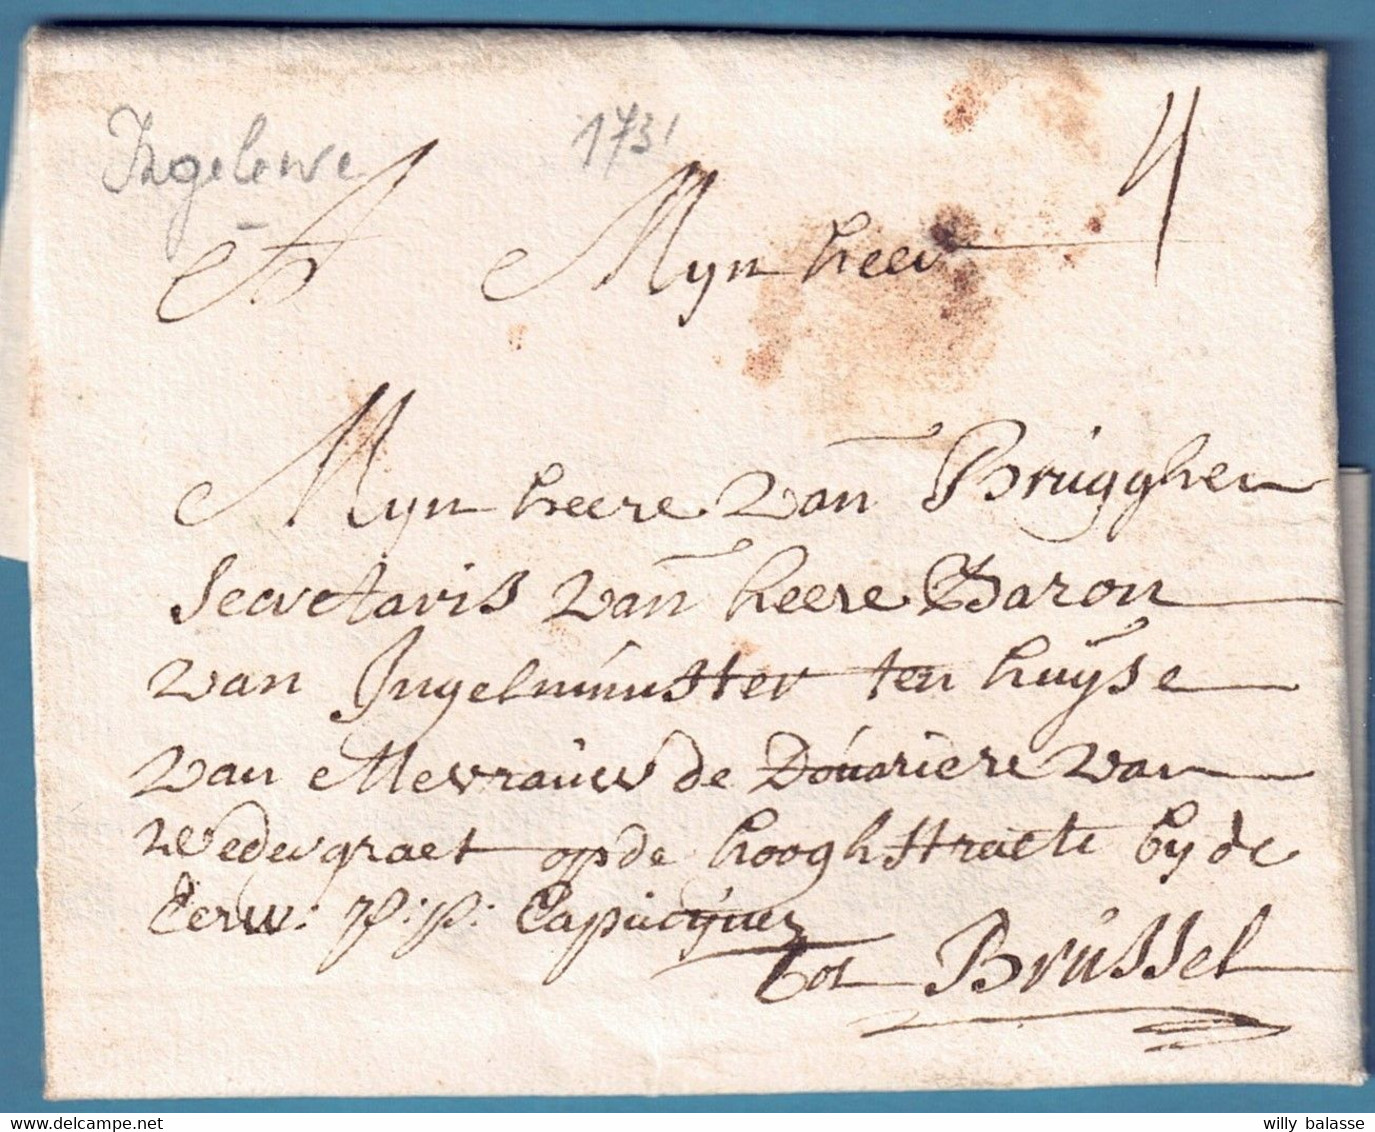 Ingelewe 1731
A Mynheer 4
Mynheere van Brugghen
Secretaris van heere Baron
van Ingelmunster ten huyse
van Mevrauw de Douariere van
Wedergraet op de hooghstraete by de
Eerw: P:P: Capucynen
tot Brussel
willy balasse